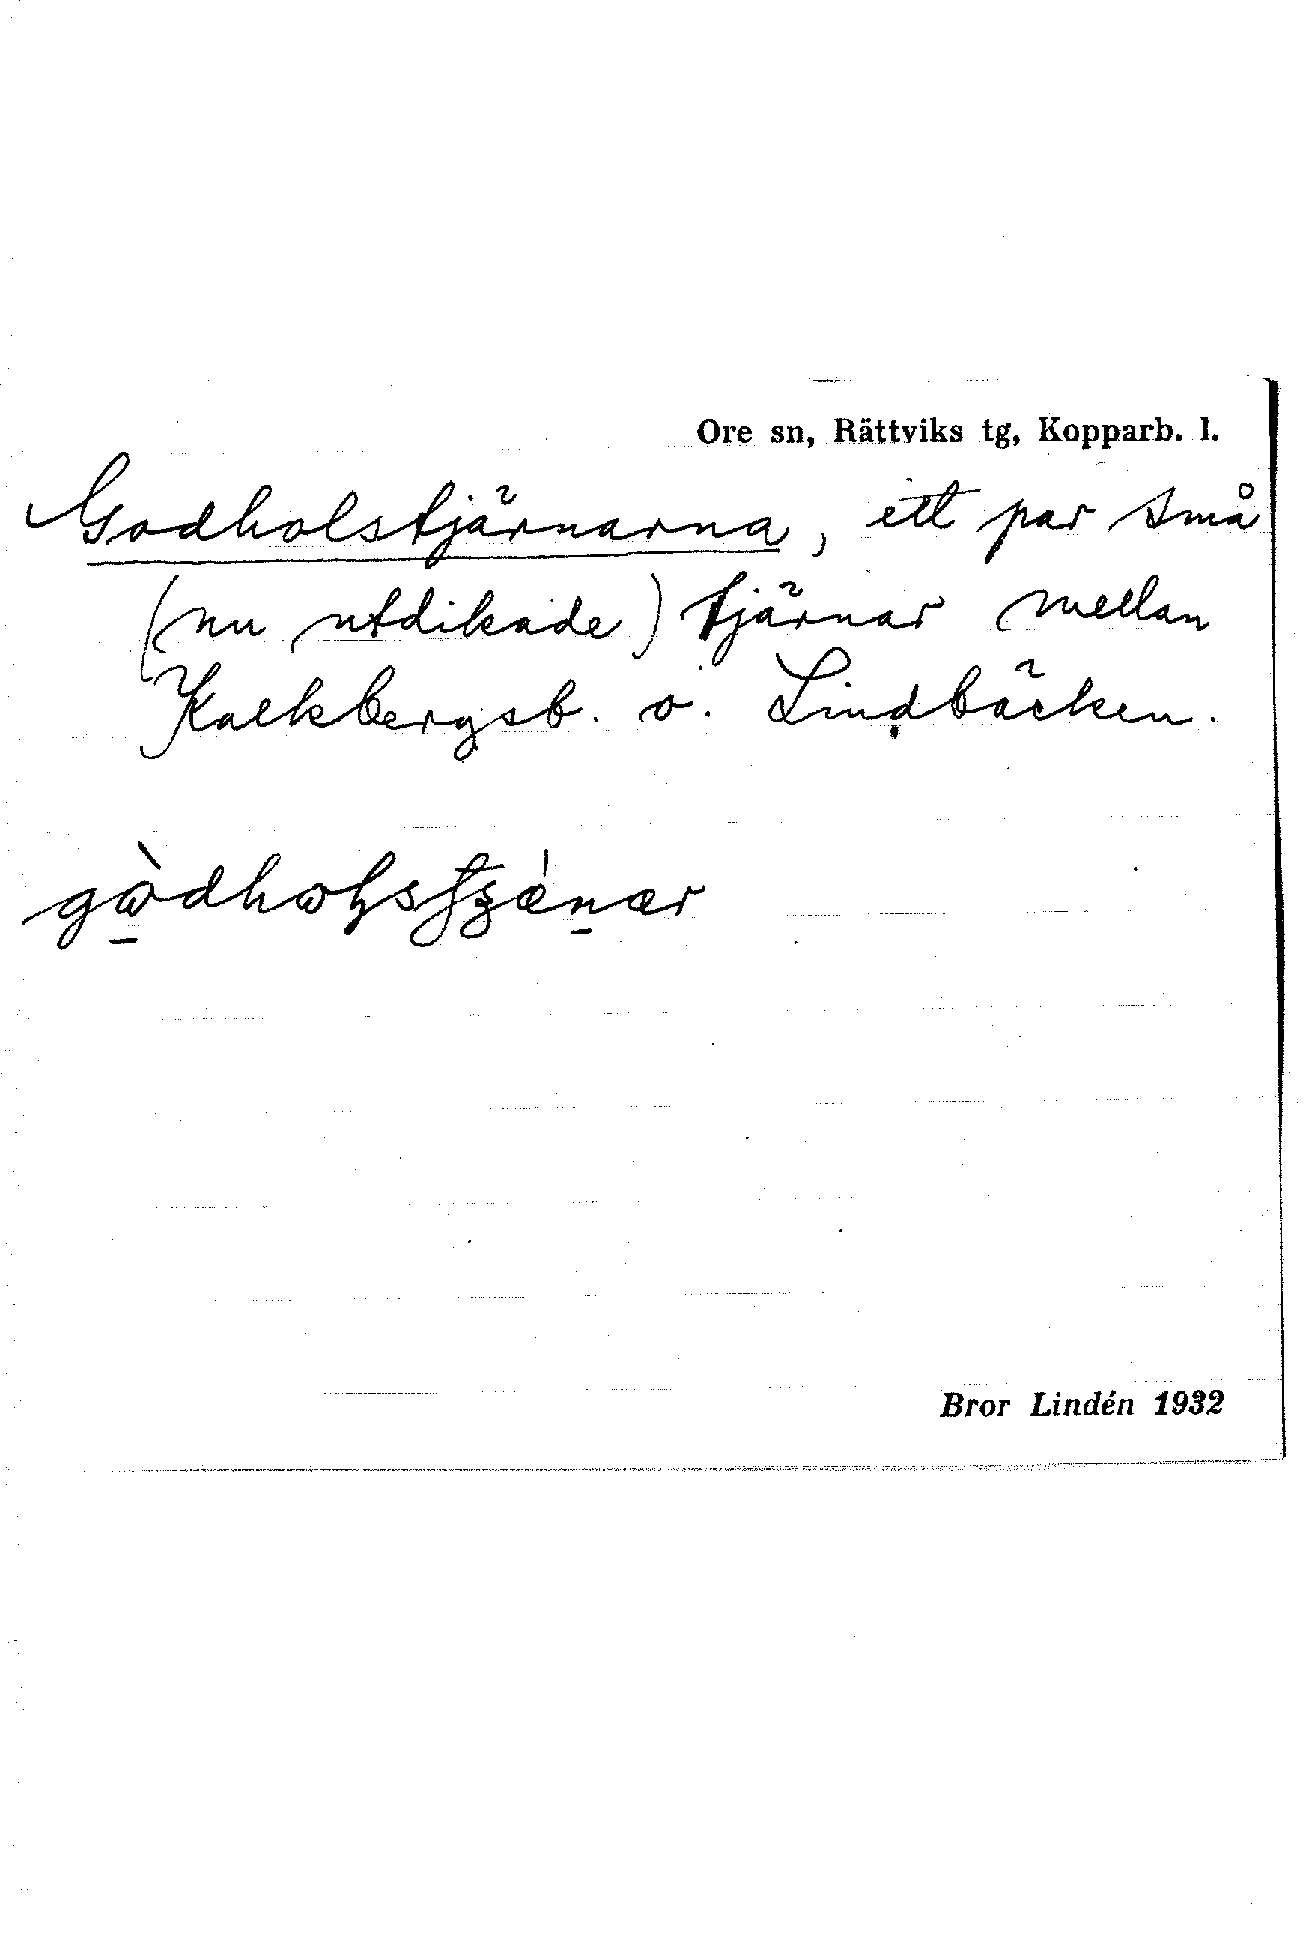 Ore sn, Rättviks tg, Kopparb. l.
Godholstjärnarna, ett par små
(nu utdikade) tjärnar mellan
Kalkbergsb. o. Lindbäcken.
Bror Lindén 1932